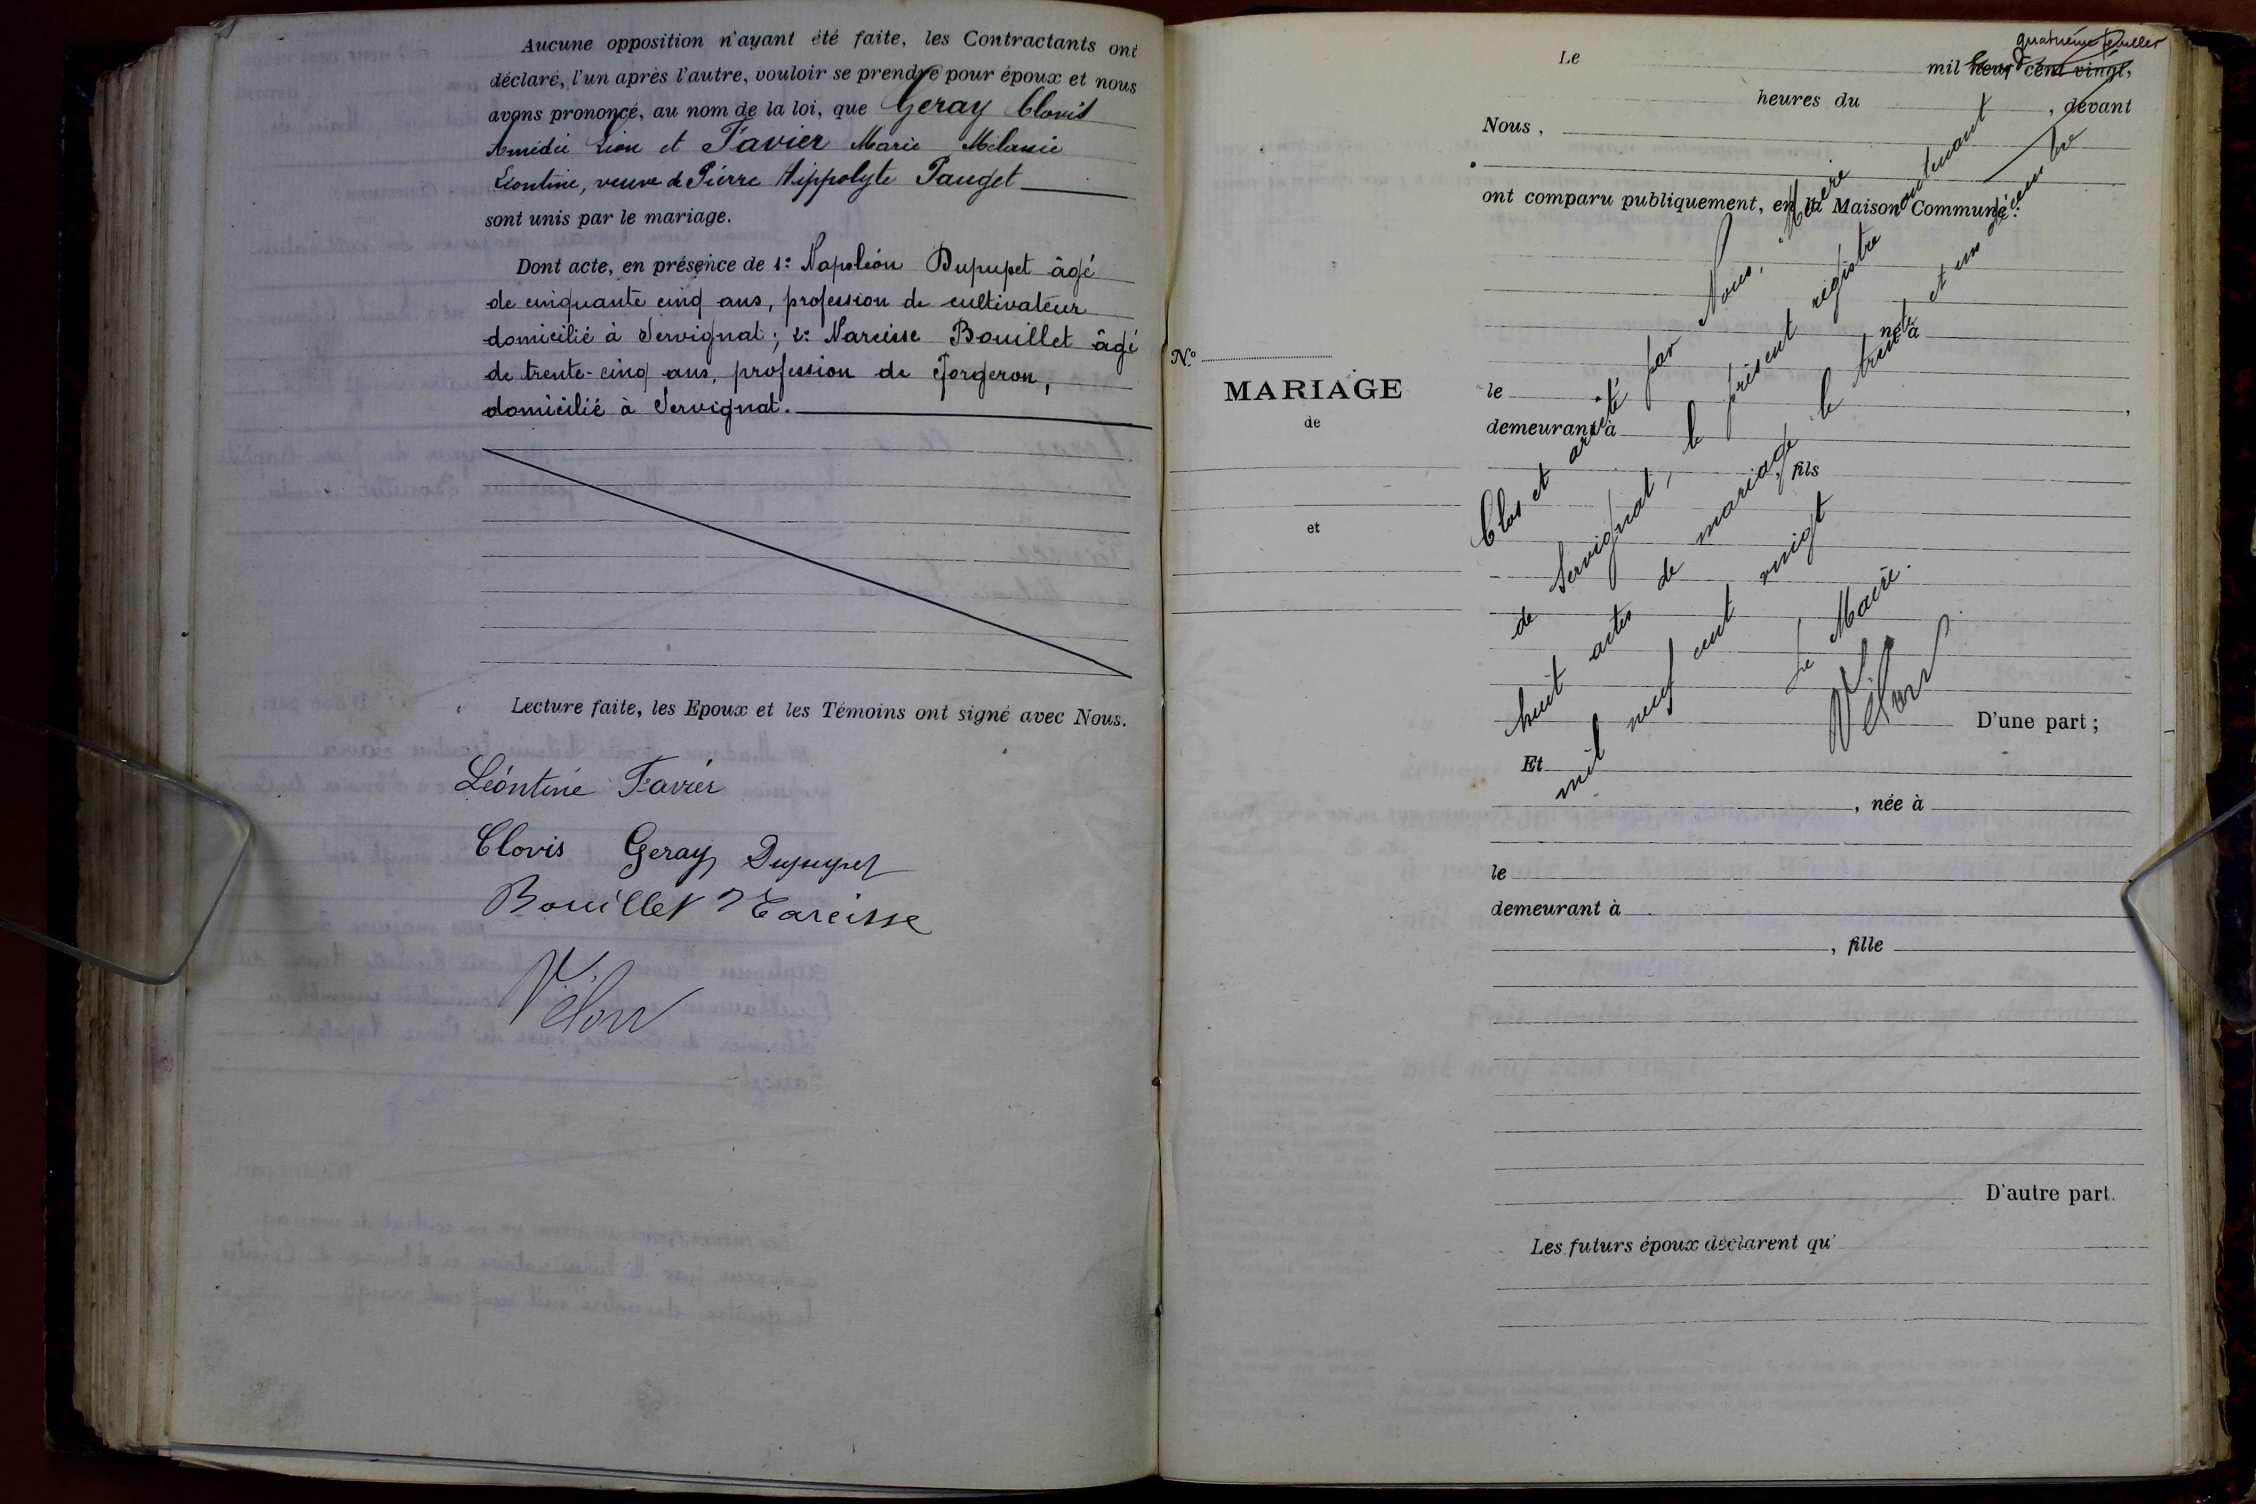 Aucune opposition n'ayant été faite, les Contractants ont
déclaré, l'un après l'autre, vouloir se prendre pour époux et nous
avons prononcé, au nom de la loi, que Geray Clovis
Amédée Léon et Favier Marie Mélanie
Léontine, veuve de Pierre Hippolyte Pauget
sont unis par le mariage.
Dont acte, en présence de 1: Napoléon Dupupet âgé
de cinquante cinq ans, profession de cultivateur
domicilié à Servignat; 2: Narcisse Bouillet âgé
de trente-cinq ans, profession de forgeron,
domicilié à Servignat.
Lecture faite, les Epoux et les Témoins ont signé avec Nous.
Léontine Favier
Clovis Geray Dupupet
Bouillet Narcisse
Vélon
quatrième feuillet
Le mil neuf cent vingt,
heures du , devant
Nous,
ont comparu publiquement, en la Maison Commune:
né à
le
demeurant à
, fils
D'une part;
Et
, née à
le
demeurant à
, fille
D'autre part.
Les futurs époux déclarent qu'
No
MARIAGE
de
et
Clos et arrêté par Nous, Maire
de Servignat, le présent registre contenant
huit actes de mariage le trente et un décembre
mil neuf cent vingt
Le Maire.
Vélon